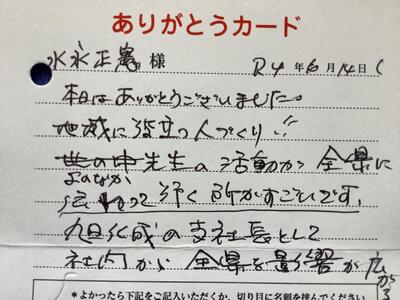 ありがとうカード
水永正憲 様 R4年6月14日(
本日はありがとうございました。
地域に役立つ人づくり!!
世の中先生の活動が全県に
よのなか
広がって行く所がすごいです。
旭化成の支社長として
社内から全県を影響が広
がる
*よかったら下記をご記入いただくか、切り目に名刺を挟んでください